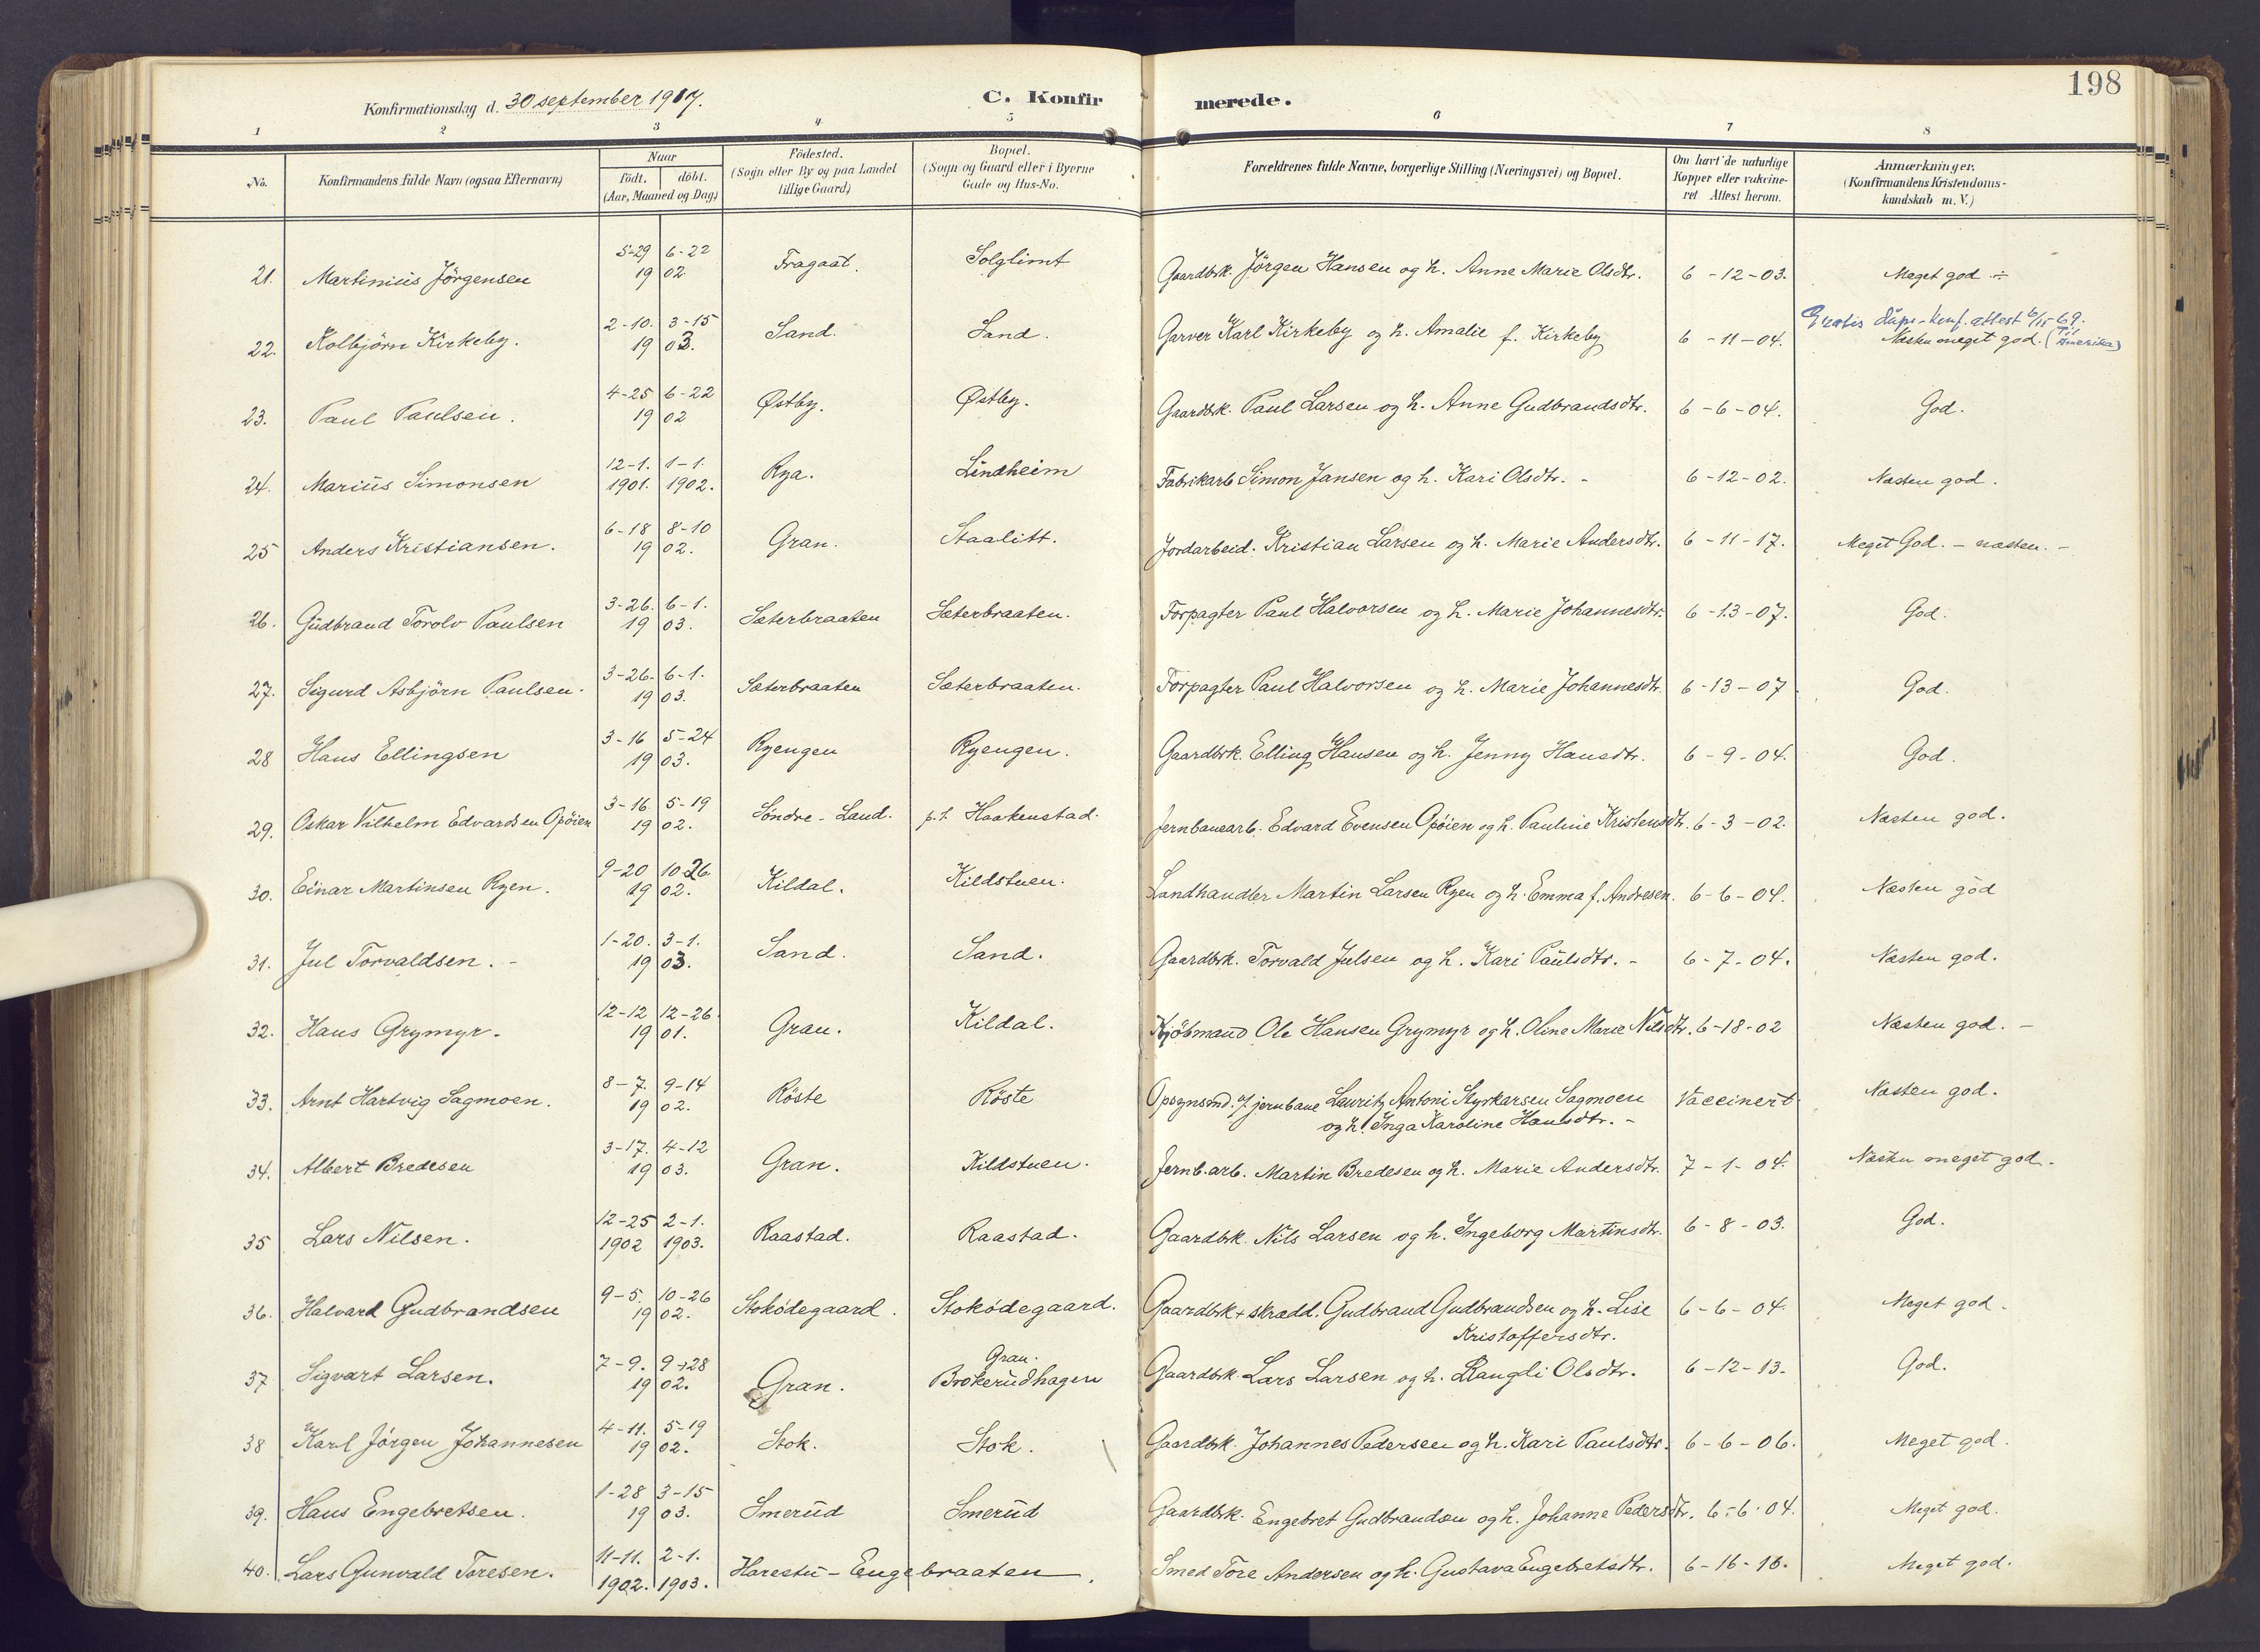 198
Konfirmationsdag d. 30 september 1917. C. Konfirmerede.
1 2 3 4 5 6 7 8
No. Konfirmandens fulde Navn (ogsaa Efternavn) Naar födt. döbt. (Aar, Maaned og Dag) Födested. (Sogn eller By og paa Landet tillige Gaard) Bopæl. (Sogn og Gaard eller i Byerne Gade og Hus-No. Forældrenes fulde Navne, borgerlige Stilling (Næringsvei) og Bopæl. Om havt de naturlige Kopper eller vakcineret Attest herom. Anmærkninger. (Konfirmandens Kristendomskundskab m. V.)
21. Martinius Jörgensen 5-29 6-22 1902 Fragaat. Solglimt Gaardbrk. Jörgen Hansen og h. Anne Marie Olsdtr. 6-12-03. Meget god ÷
Gratis dåps-konf. attest 6/15 69. (Til Amerika)
22. Kolbjörn Kirkeby. 2-10. 3-15 1903. Sand. Sand. Garver Karl Kirkeby og h. Amalie f. Kirkeby 6-11-04. Næsten meget god.
23. Paul Paulsen. 4-25 6-22 1902 Østby. Østby. Gaardbrk. Paul Larsen og h. Anne Gudbrandsdtr. 6-6-04. God.
24. Marius Simonsen 12-1. 1901. 1-1. 1902. Rya. Lindheim Fabrikarb Simon Jansen og h. Kari Olsdtr. - 6-12-02. Næsten god.
25 Anders Kristiansen. 6-18 8-10 1902. Gran. Staalitt. Jordarbeid. Kristian Larsen og h. Marie Andersdtr. 6-11-17. Meget God. - næsten. -
26. Gudbrand Torolv Paulsen 3-26. 6-1. 1903. Sæterbraaten Sæterbraaten. Forpagter Paul Halvorsen og h. Marie Johannesdtr. 6-13-07. God.
27. Sigurd Asbjörn Paulsen. 3-26. 6-1. 1903. Sæterbraaten Sæterbraaten. Forpagter Paul Halvorsen og h. Marie Johannesdtr. 6-13-07 God.
28 Hans Ellingsen 3-16 5-24 1903. Ryengen Ryengen. Gaardbrk. Elling Hansen og h. Jenny Hansdtr. 6-9-04. God.
29. Oskar Vilhelm Edvardsen Opöien 3-16 5-19 1902. Söndre-Land. p.t. Haakenstad. Jernbanearb. Edvard Evensen Opöien og h. Pauline Kristensdtr. 6-3-02. Næsten god.
30. Einar Martinsen Ryen. 9-20 10-26 1902. Kildal. Kildstuen. Landhandler Martin Larsen Ryen og h. Emma f. Andresen. 6-6-04. Næsten god
31. Jul Torvaldsen. - 1-20. 3-1. 1903. Sand. Sand. Gaardbrk. Torvald Julsen og h. Kari Paulsdtr. - 6-7-04. Næsten god.
32. Hans Grymyr. 12-12 12-26 1901. Gran. Kildal. Kjöbmand Ole Hansen Grymyr og h. Oline Marie Nilsdtr. 6-18-02 Næsten god. -
33. Arnt Hartvig Sagmoen. 8-7. 9-14 1902. Röste Röste Opsynsmd. v/ jernbane Lauritz Antoni Styrkarsen Sagmoen Vaccinert. Næsten god.
og h. Inga Karoline Hansdtr. -
34. Albert Bredesen 3-17. 4-12 1903. Gran. Kildstuen. Jernb.arb. Martin Bredesen og h. Marie Andersdtr. 7-1-04. Næsten meget god.
35 Lars Nilsen. 12-25 1902 2-1. 1903. Raastad. Raastad. Gaardbrk. Nils Larsen og h. Ingeborg Martinsdtr. 6-8-03. God.
36. Halvard Gudbrandsen 9-5. 10-26 1902. Stoködegaard. Stoködegaard. Gaardbrk + skrædd. Gudbrand Gudbrandsen og h. Lise 6-6-04. Meget god.
Kristoffersdtr.
37 Sigvart Larsen. 7-9. 9-28 1902. Gran. Gran. Brokerudhagen Gaardbrk. Lars Larsen og h. Rangdi Olsdtr. 6-12-13. God.
38 Karl Jörgen Johannesen 4-11. 5-19 1902. Stok. Stok. Gaardbrk. Johannes Pedersen og h. Kari Paulsdtr. 6-6-06. Meget god.
39. Hans Engebretsen. 1-28 3-15 1903. Smerud Smerud Gaardbrk. Engebret Gudbrandsen og h. Johanne Pedersdtr. 6-6-04. Meget god.
40. Lars Gunvald Toresen. 11-11. 1902. 2-1. 1903. Harestu-Engebraaten. Smed Tore Andersen og h. Gustava Engebretsdtr. 6-16-16. Meget god.